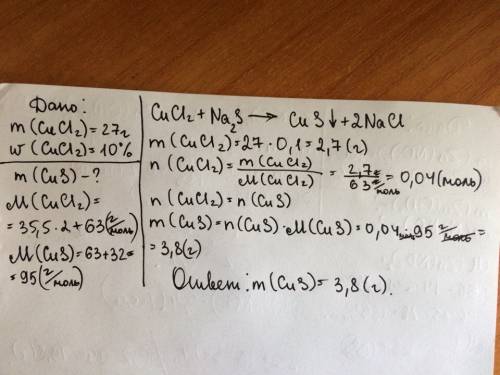 Дано:
m(CuCl₂)=27г
w(CuCl₂)=10%
m(CuS)-?
M(CuCl₂)=
=35,5·2+63(г/моль)
M(CuS)=63+32=
=95(г/моль)
CuCl₂+Na₂S → CuS↓+2NaCl
m(CuCl₂)=27·0,1=2,7(г)
n(CuCl₂)=m(CuCl₂)/M(CuCl₂)=2,7г/63г/моль=0,04(моль)
n(CuCl₂)=n(CuS)
m(CuS)=n(CuS)·M(CuS)=0,04моль·95г/моль=
=3,8(г)
Ответ: m(CuS)=3,8(г).